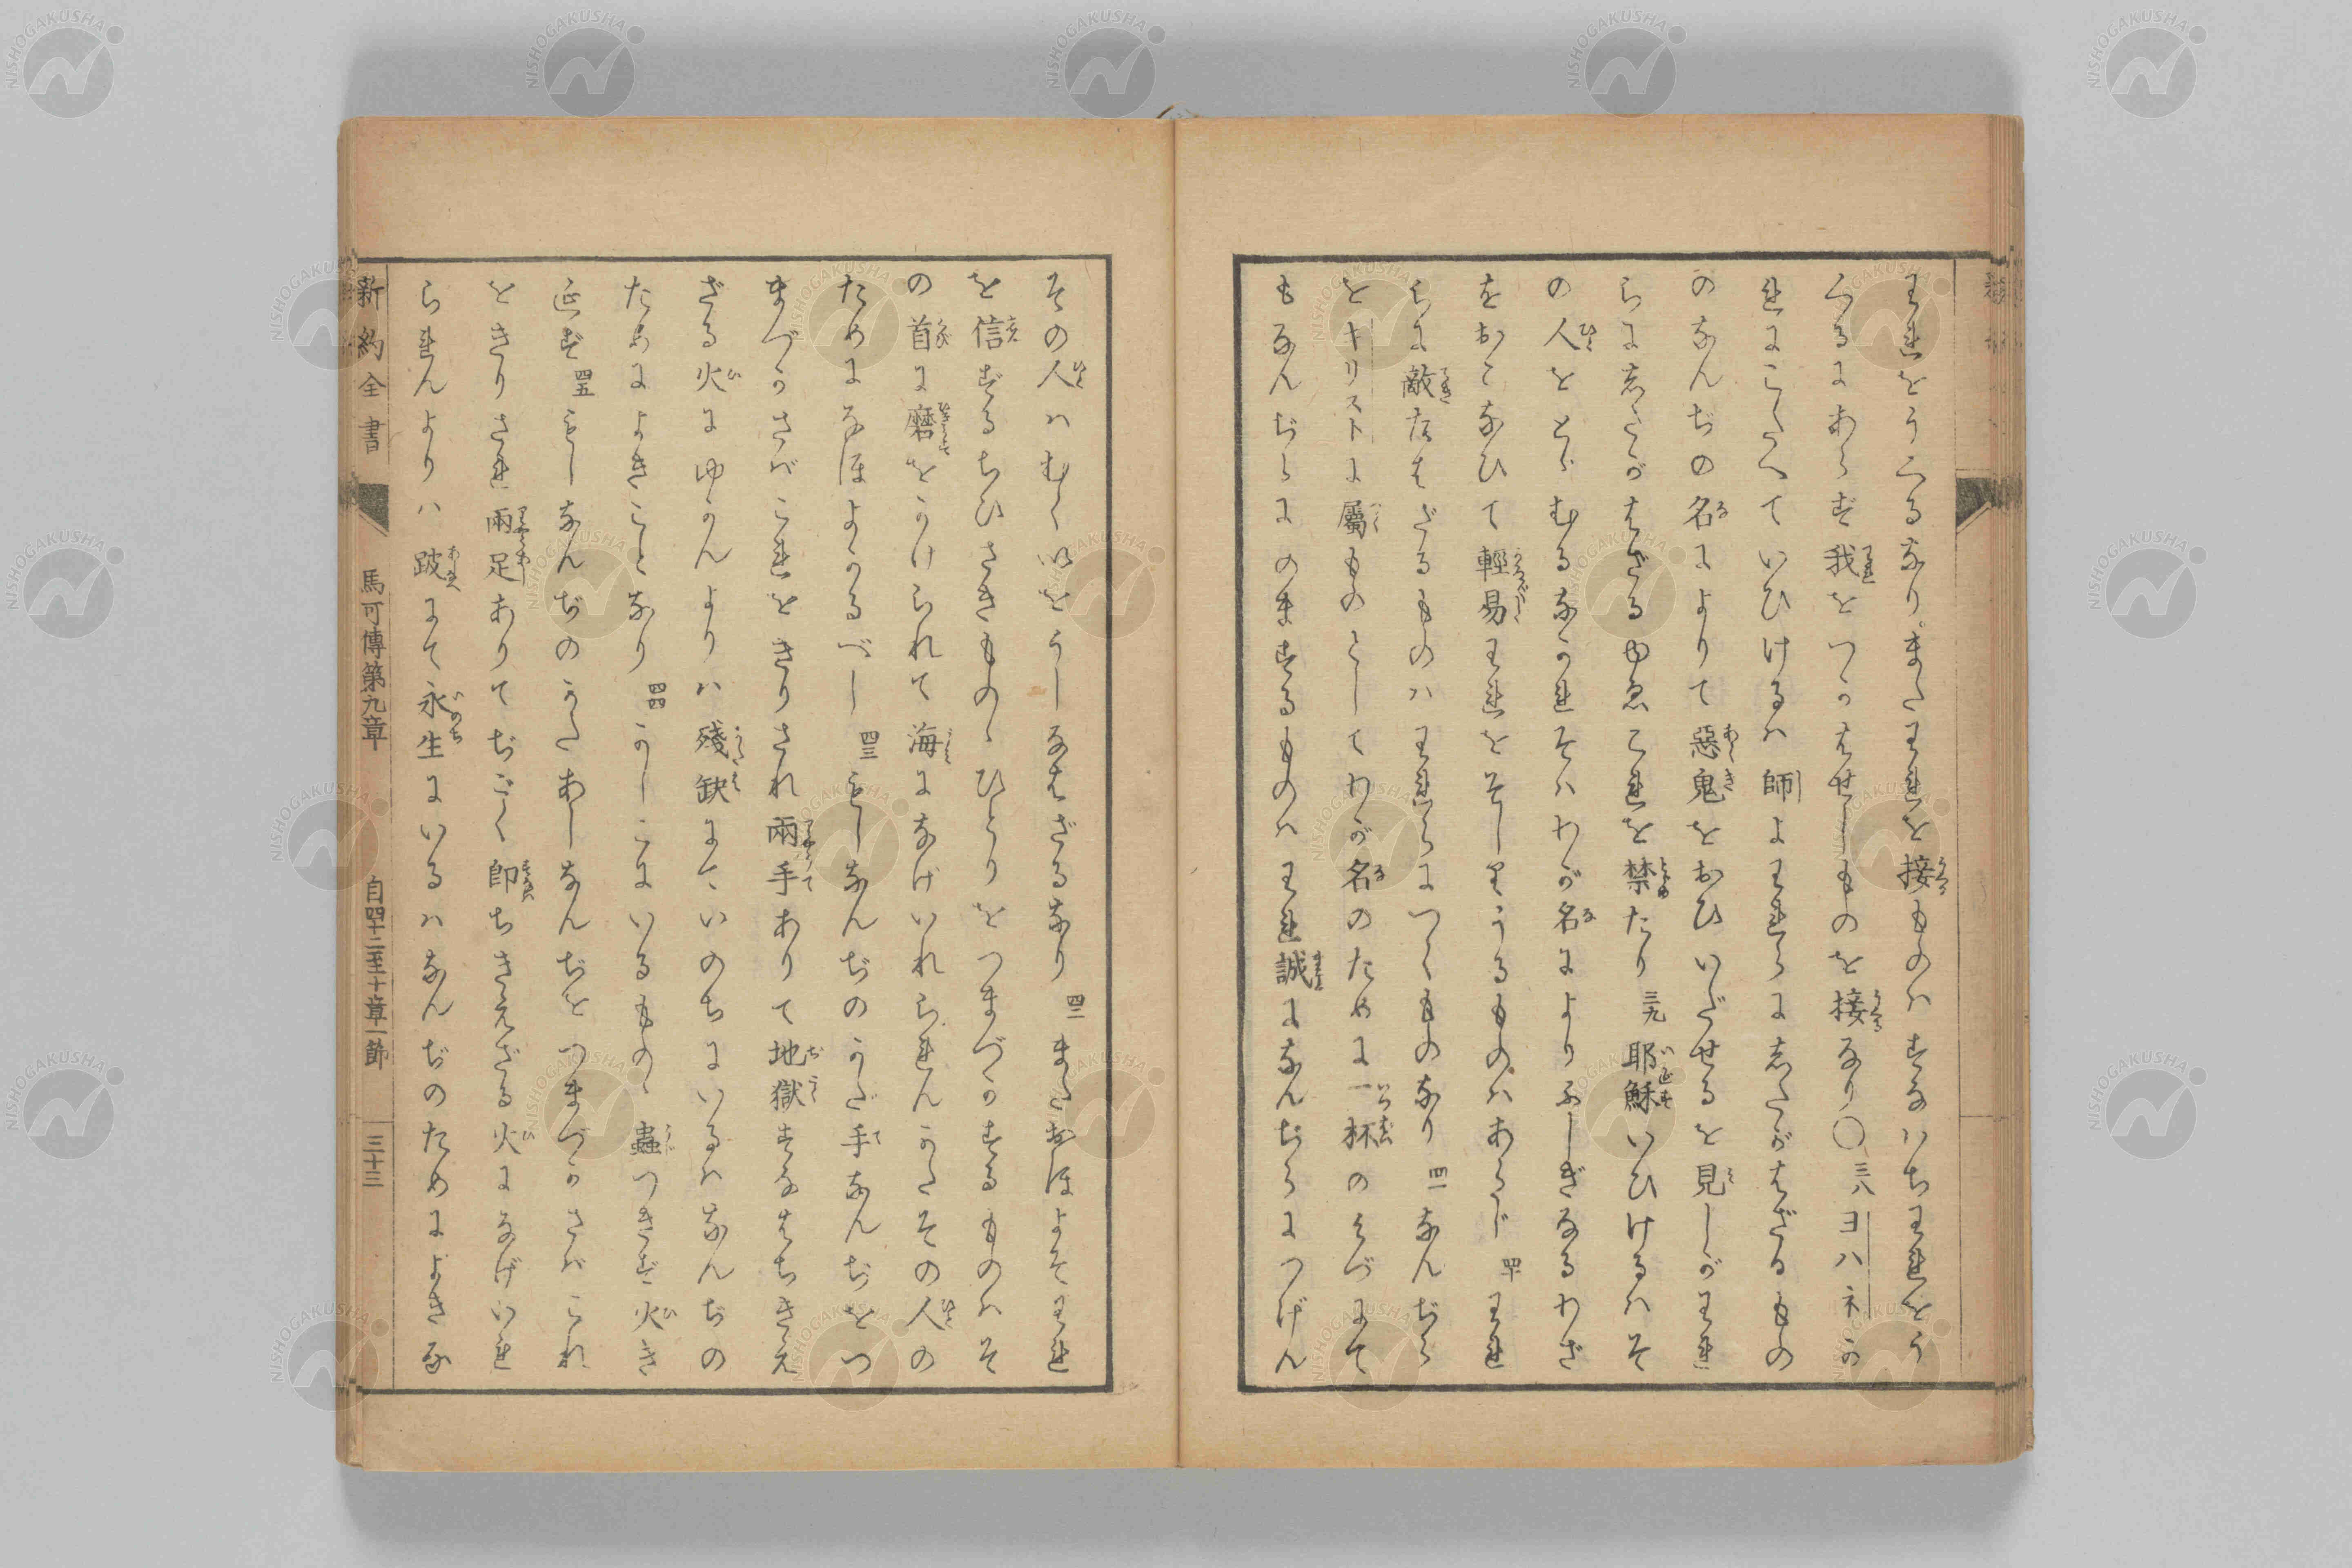 王れをうくるなり。また王れを接ものハすなハち王れをう
くるにあらず我をつかはせしものを接なり〇三八ヨハネか
れにこたへていひけるハ師よ王れらにしたがはざるもの
のなんぢの名によりて惡鬼をおひいだせるを見しが王れ
らにしたがはざるゆゑこれを禁たり三九耶穌いひけるハそ
の人をとゞむるなかれそハわが名によりふしぎなるわざ
をおこなひて輕易王れをそしりうるものハあらじ四十王れ
らに敵たはざるものハ王れらにつくものなり四一なんぢら
をキリストに屬ものとしてわが名のために一杯のみづにて
もなんぢらにのまするものハ王れ誠になんぢらにつげん
その人ハむくいをうしなはざるなり四二またおほよそ王れ
を信ずるちひさきものゝひとりをつまづかするものハそ
の首に磨をかけられて海になげいれられんかたその人の
ためになほよかるべし四三もしなんぢのかた手なんぢをつ
まづかさバこれをきりされ兩手ありて地獄すなはちきえ
ざる火にゆかんよりハ殘缺にていのちにいるハなんぢの
ためによきことなり四四かしこにいるものゝ蟲つきず火き
えず四五もしなんぢのかたあしなんぢをつまづかさバこれ
をきりされ兩足ありてぢごく即ちきえざる火になげいれ
られんよりハ跛にて永生にいるハなんぢのためによきな
新約全書 馬可傳第九章 自四十二至十章一節 三十三